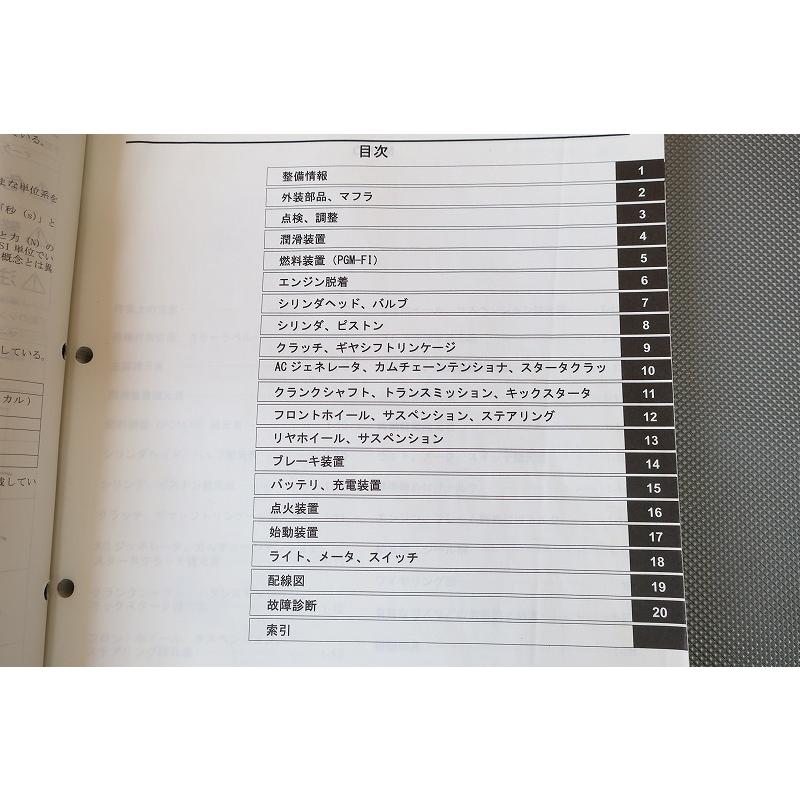 ている。
な単位系を
「秒 (s)」と
と力 (N) の
SI 単位でい
概念とは異
している。
カル)
載してい
目次
整備情報 1
外装部品、マフラ 2
点検、調整 3
潤滑装置 4
燃料装置 (PGM-FI) 5
エンジン脱着 6
シリンダヘッド、バルブ 7
シリンダ、ピストン 8
クラッチ、ギヤシフトリンケージ 9
ACジェネレータ、カムチェーンテンショナ、スタータクラッ 10
クランクシャフト、トランスミッション、キックスタータ 11
フロントホイール、サスペンション、ステアリング 12
リヤホイール、サスペンション 13
ブレーキ装置 14
バッテリ、充電装置 15
点火装置 16
始動装置 17
ライト、メータ、スイッチ 18
配線図 19
故障診断 20
索引